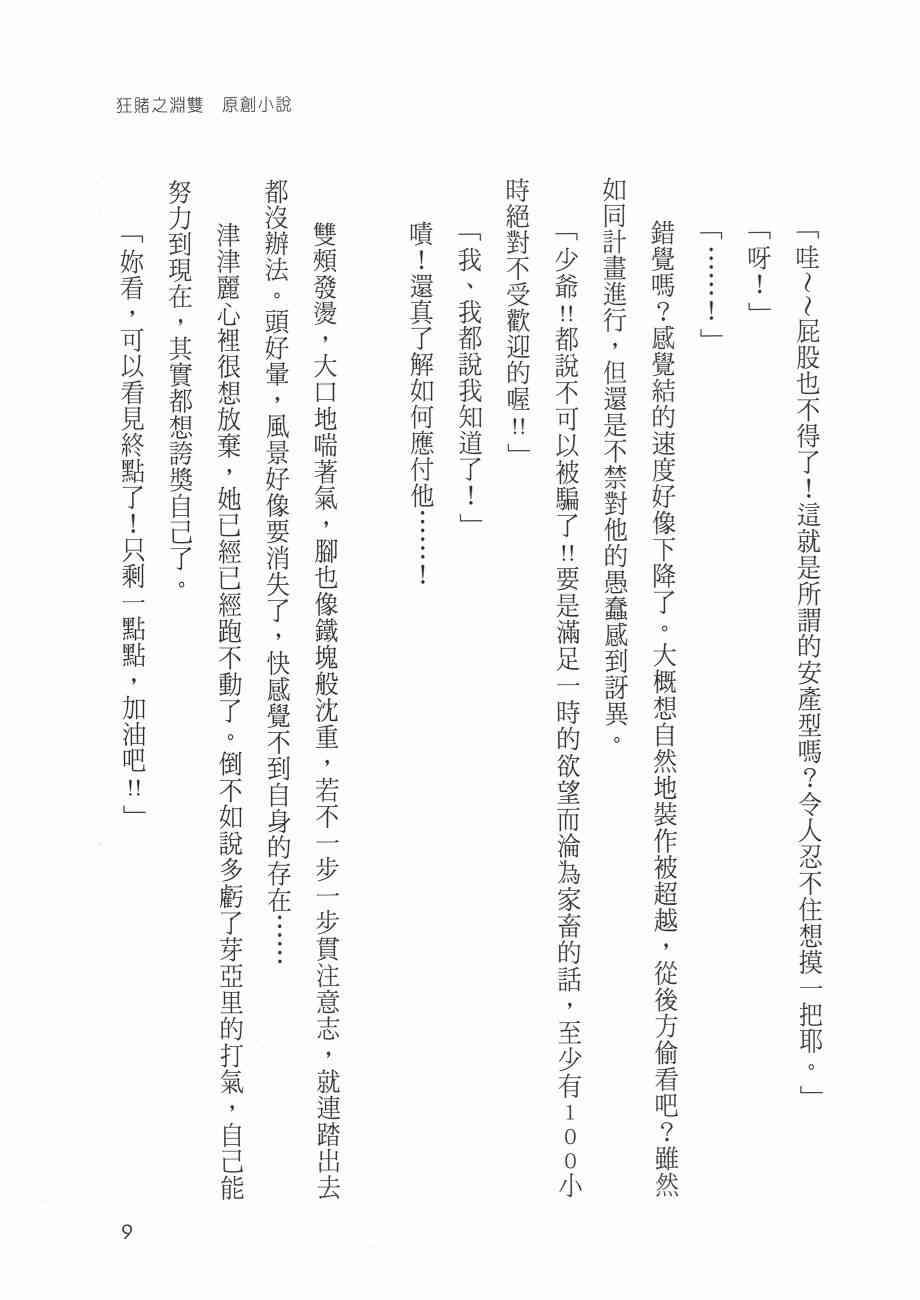 狂賭之淵雙　原創小說
「哇～～屁股也不得了！這就是所謂的安產型嗎？令人忍不住想摸一把耶。」
「呀！」
「……！」
錯覺嗎？感覺結的速度好像下降了。大概想自然地裝作被超越，從後方偷看吧？雖然
如同計畫進行，但還是不禁對他的愚蠢感到訝異。
「少爺!!都說不可以被騙了!!要是滿足一時的欲望而淪為家畜的話，至少有100小
時絕對不受歡迎的喔!!」
「我、我都說我知道了！」
嘖！還真了解如何應付他……！
雙頰發燙，大口地喘著氣，腳也像鐵塊般沈重，若不一步一步貫注意志，就連踏出去
都沒辦法。頭好暈，風景好像要消失了，快感覺不到自身的存在……
津津麗心裡很想放棄，她已經已經跑不動了。倒不如說多虧了芽亞里的打氣，自己能
努力到現在，其實都想誇獎自己了。
「妳看，可以看見終點了！只剩一點點，加油吧!!」
9